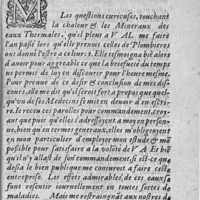 M
Les questions curieuses, touchant
la chaleur & les Mineraux des
eaux Thermales, qu'il pleut a V AL me faire
l'an passé lors qu'elle prenoit celles de Plombieres
ont donné l'estre a celivre. Elle tesmoigna bié alors
d'avoir pour aggreable ce que la briefueté du temps
me permit de luy en discourir pour l'heure mesme.
Pour preuue de ce desir & conclusion de mes dis-
cours, elle me dit qu'il seroit fort a propos que quel-
qu'vn de ses Medecins se mit en deuoir d'en escri-
re. Je receu ces parolles pour commandement, croy-
ant que puis qu'elles s'adressoyent a moy en person-
ne, bien qu'en termes generaux, elles m'obligeoyent
en mon particulier d'employer mon estude & mō
possible pour satisfaire a la volonté de S A Et bié
qu'il n'y allast que de son commandement, si est-ce que
desia le bien publique me conuioit a faire celle
entreprise. Les effets admirables, de ces eaux se
font resentir iournellement en toutes sortes de
maladies. Mais me restraignāt aux nostres de